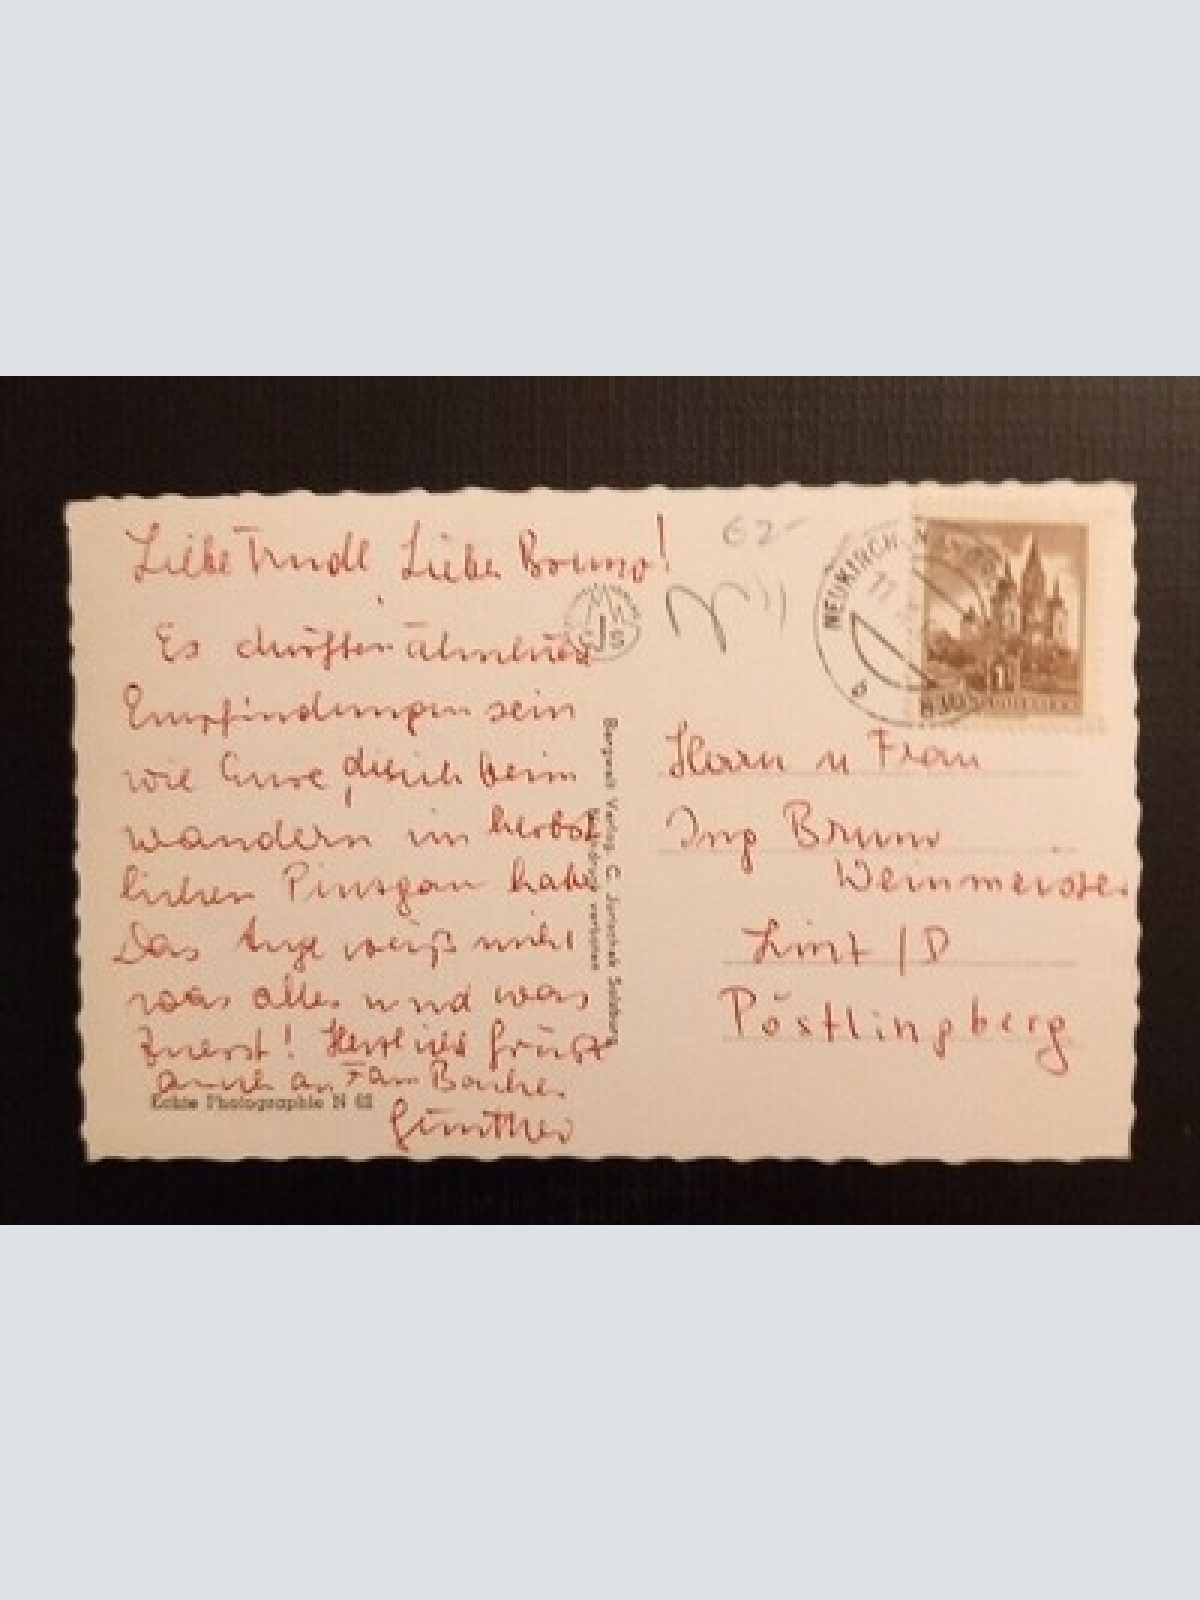 Liebe Trudl Lieber Bruno!
Es dürften ähnliche
Empfindungen sein
wie Eure, die ich beim
wandern im herbst
lichen Pinzgau habe
Das Auge weiß nicht
was alles und was
zuerst! Herzlichst grüßt
auch an Fam
Günther
Echte Photographie N 62
Bergwelt Verlag, C. Jurischek Salzburg
verboten
62-
NEUKIRCH
Herrn u Frau
Ing Bruno
Weinmeister
Linz / D
Pöstlingberg